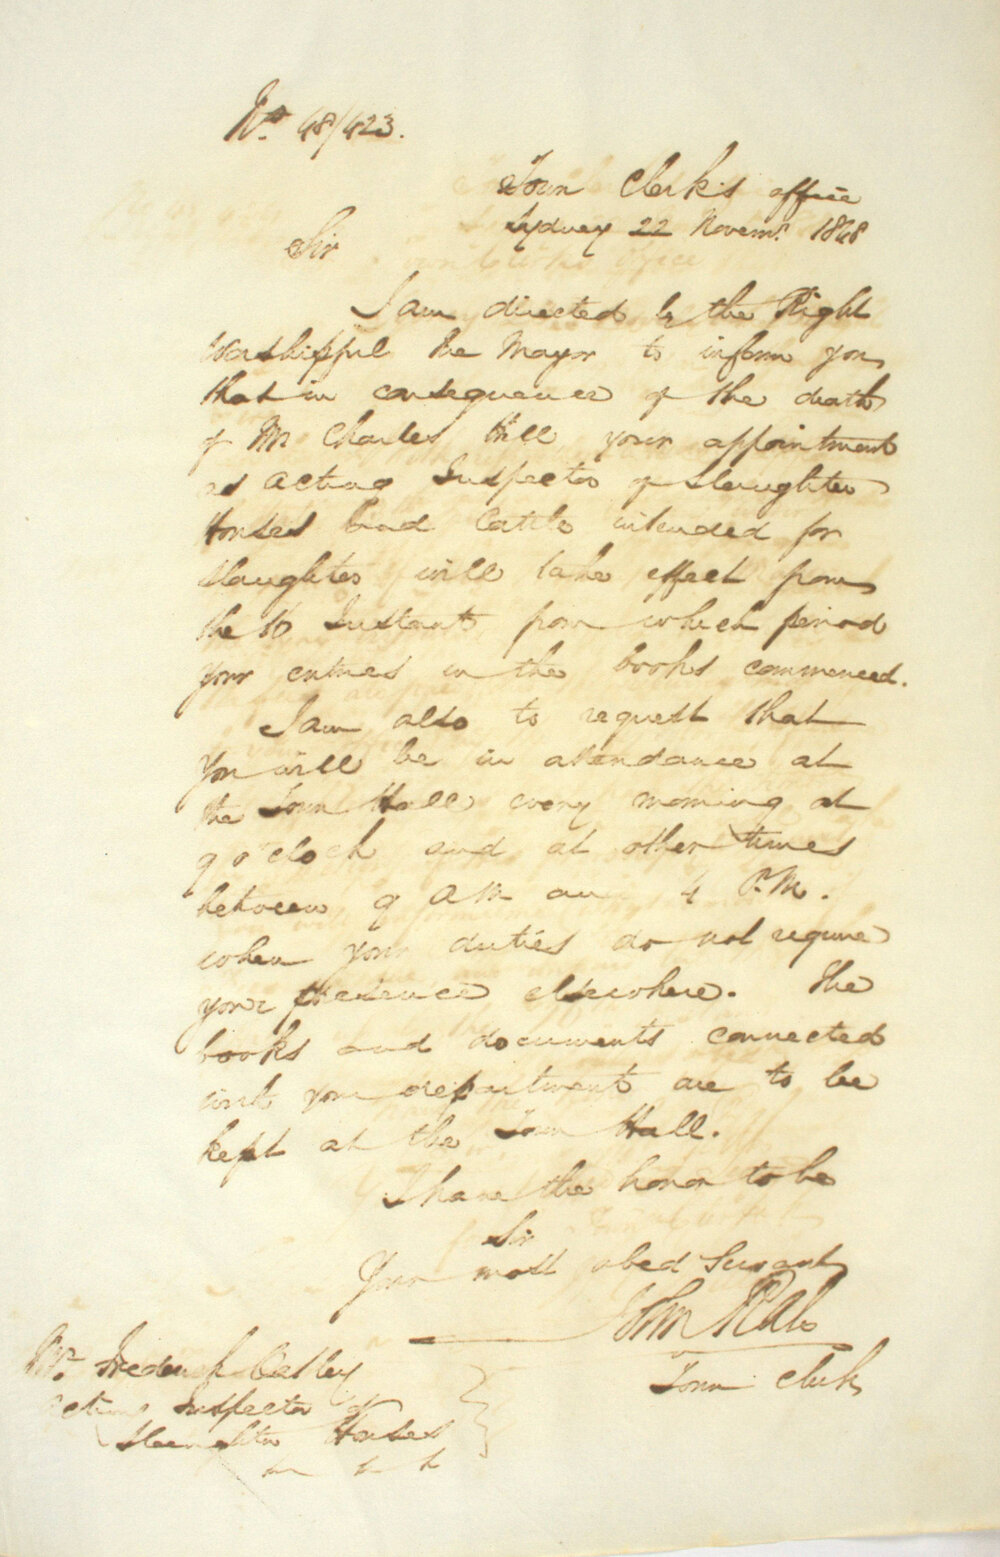 No. 48/423.
Town Clerk's office
Sydney 22 Novemr. 1848
Sir
I am directed by the Right
Worshipful the Mayor to inform you
that in consequence of the death
of Mr Charles Hill your appointment
as acting Inspector of Slaughter
Houses and Cattle intended for
Slaughter will take effect from
the 16 Instant from which period
your entries in the books commenced.
I am also to request that
you will be in attendance at
the Town Hall every morning at
9 o'clock and at other times
between 9 AM an 4 P.M.
when your duties do not require
your presence elsewhere. The
books and documents connected
with your department are to be
kept at the Town Hall.
I have the honor to be
Sir
Your most obed Servant
John
Town Clerk
Mr. Frederick
Acting Inspector of
Slaughter Houses